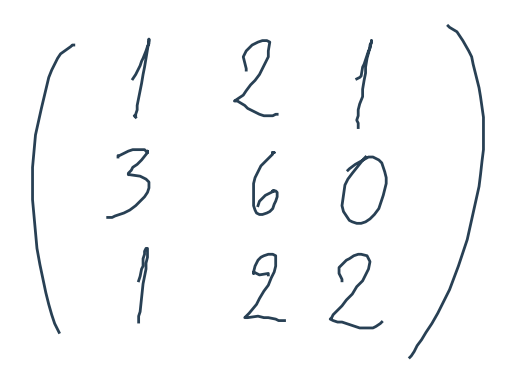 1 2 1
3 6 0
1 2 2